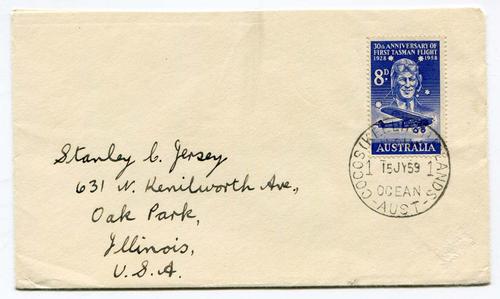 30th ANNIVERSARY OF
FIRST TASMAN FLIGHT
1928 1958
8D
AUSTRALIA
COCOS (KEELING) ISLANDS
1 15JY59 1
OCEAN
-AUST-
Stanley C. Jersey
631 N. Kenilworth Ave.,
Oak Park,
Illinois,
U.S.A.